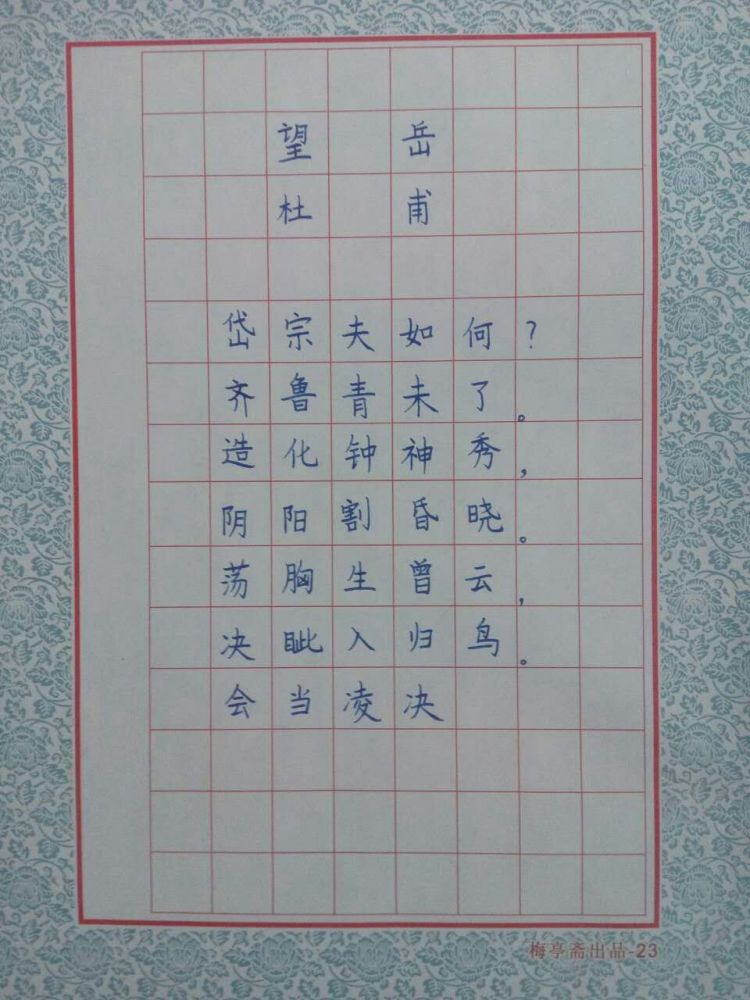 望岳
杜甫
岱宗夫如何?
齐鲁青未了。
造化钟神秀,
阴阳割昏晓。
荡胸生曾云,
决眦入归鸟。
会当凌决
梅亭斋出品-23